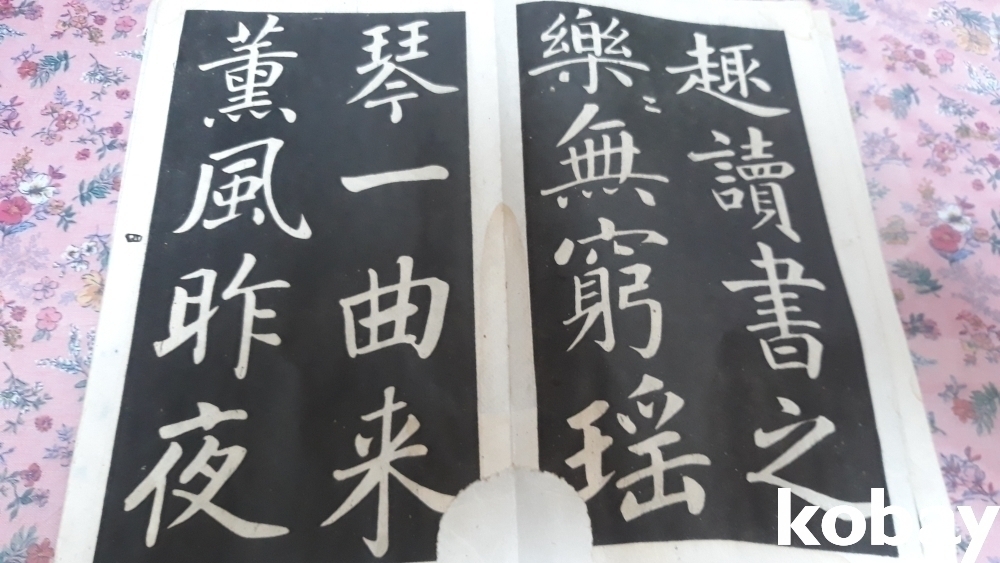 趣讀書之
樂〻無窮瑶
琴一曲来
薰風昨夜
kobay